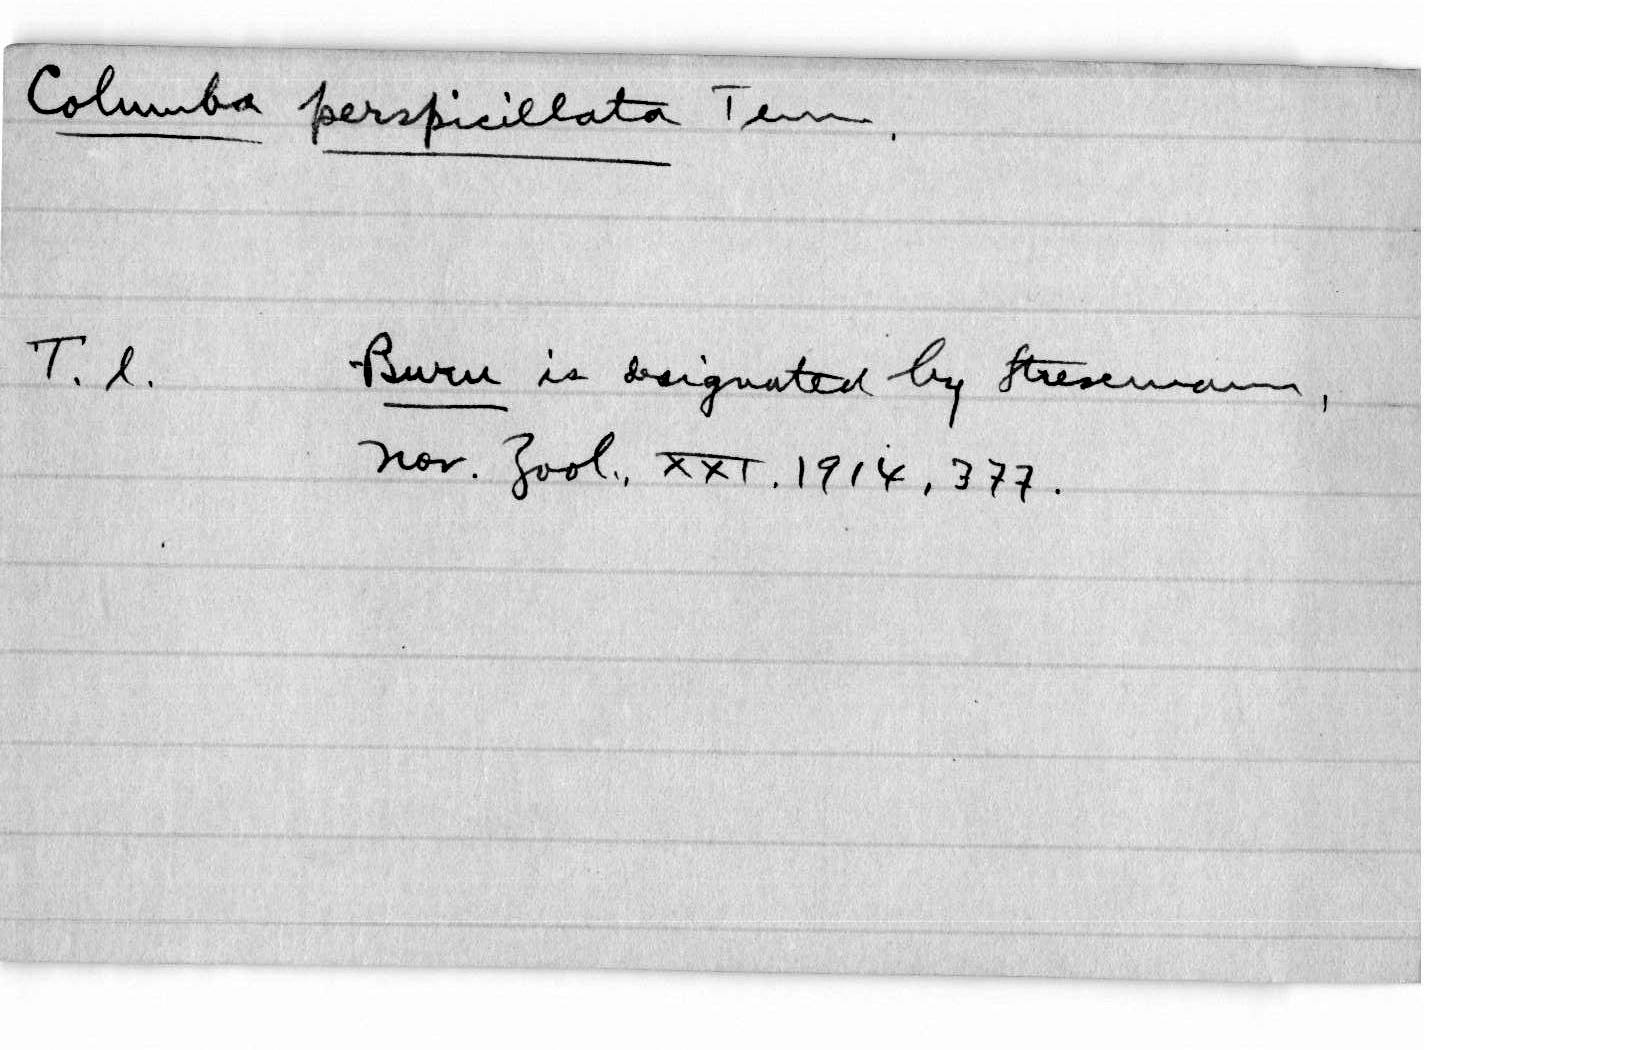 Columba perspicillata Tem.
T. l. Buru is designated by Stresemann,
Nov. Zool., XXI. 1914, 377.